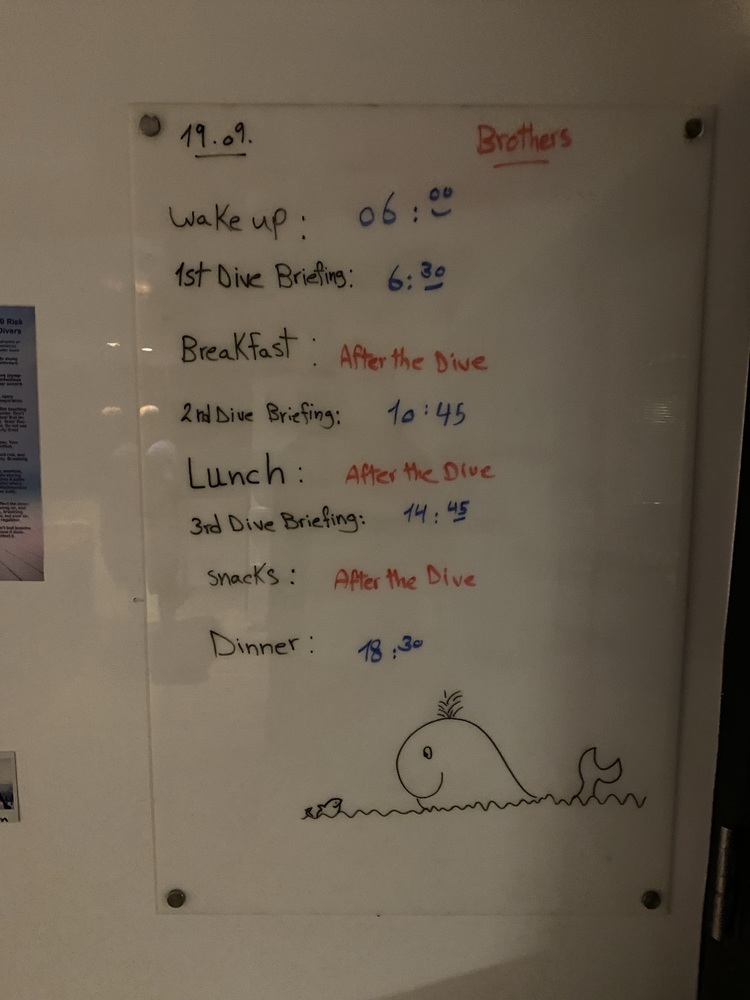 19.09. Brothers
Wake up: 06:00
1st Dive Briefing: 6:30
Breakfast: After the Dive
2nd Dive Briefing: 10:45
Lunch: After the Dive
3rd Dive Briefing: 14:45
snacks: After the Dive
Dinner: 18:30
Risk
Divers